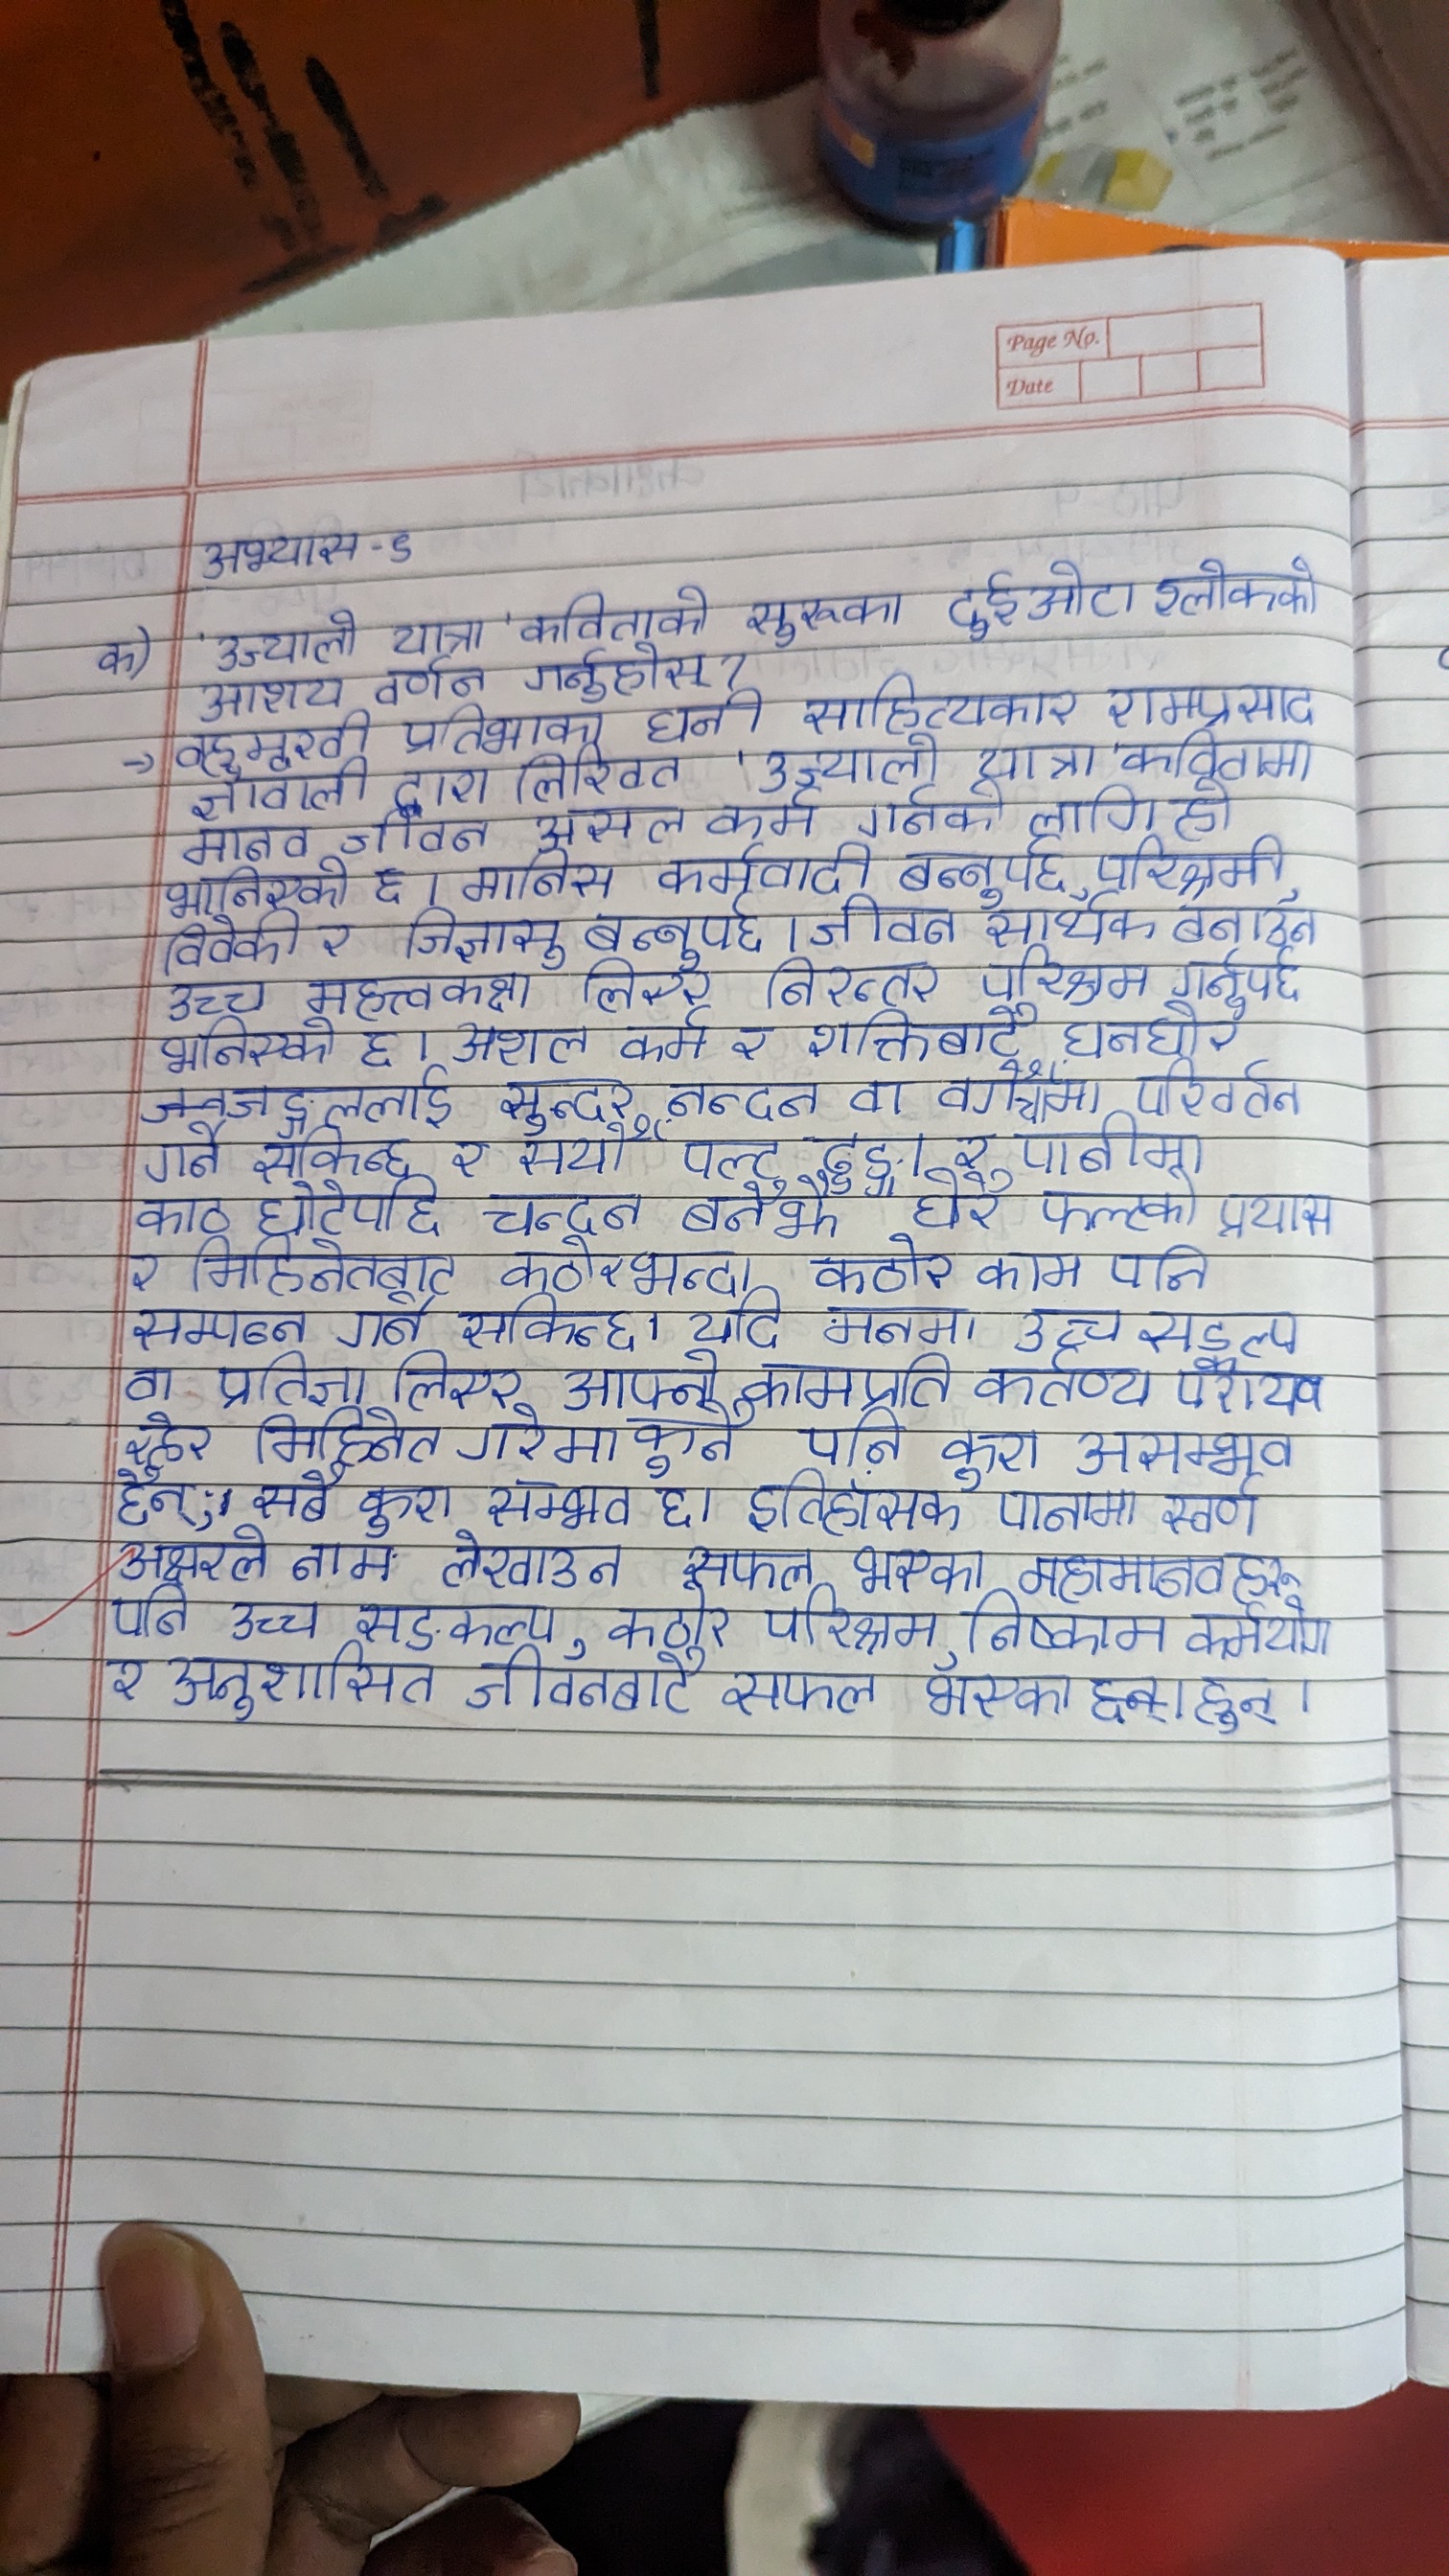 Page No.
Date
अभ्यास-९
क) 'उज्यालो यात्रा' कविताको सुरुका दुईओटा श्लोकको
आशय वर्णन गर्नुहोस् ?
→ वहुमुखी प्रतिभाका धनी साहित्यकार रामप्रसाद
ज्ञावाली द्वारा लिखित 'उज्यालो यात्रा' कवितामा
मानव जीवन असल कर्म गर्नको लागि हो
भनिएको छ । मानिस कर्मवादी बन्नुपर्छ, परिश्रमी,
विवेकी र जिज्ञासु बन्नुपर्छ । जीवन सार्थक बनाउन
उच्च महत्त्वकक्षा लिएर निरन्तर परिश्रम गर्नुपर्छ
भनिएको छ । अशल कर्म र शक्तिबाटै घनघोर
जङ्गललाई सुन्दर नन्दन वा वगैंचामा परिवर्तन
गर्न सकिन्छ र सयौं पल्ट ढुङ्गा र पानीमा
काठ घोटेपछि चन्दन बनेझैं धेरै फल्टको प्रयास
र मिहिनेतबाट कठोरभन्दा कठोर काम पनि
सम्पन्न गर्न सकिन्छ। यदि मनमा उच्च सङ्कल्प
वा प्रतिज्ञा लिएर आफ्नो कामप्रति कर्तव्य परायण
रहेर मिहिनेत गरेमा कुनै पनि कुरा असम्भव
हैन, सबै कुरा सम्भव छ। इतिहासक पानामा स्वर्ण
अक्षरले नाम लेखाउन सफल भएका महामानवहरू
पनि उच्च सङकल्प, कठोर परिश्रम, निष्काम कर्मयोग
र अनुशासित जीवनबाटै सफल भएका छन्। हुन् ।